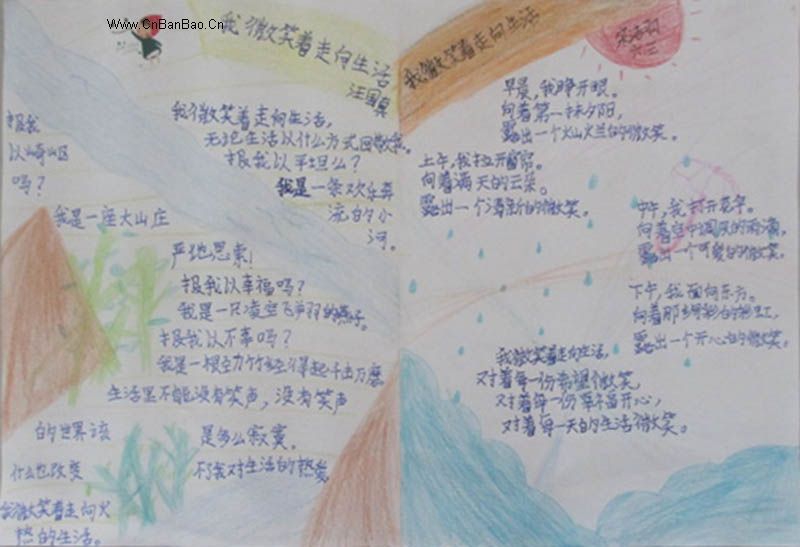 www.CnBanBao.Cn
我微笑着走向生活
汪国真
我微笑着走向生活,
无论生活以什么方式回敬我。
报我以平坦么?
我是一条欢乐奔
流的小
河。
报我
以崎岖
吗?
我是一座大山庄
严地思索!
报我以幸福吗?
我是一只凌空飞翔的燕子。
报我以不幸吗?
我是一根劲竹经得起千击万磨。
生活里不能没有笑声,没有笑声
的世界该 是多么寂寞。
什么也改变 不了我对生活的热爱,
我微笑着走向火
热的生活。
我微笑着走向生活
六三
早晨,我睁开眼。
向着第一抹夕阳,
露出一个火山火兰的微笑。
上午,我拉开窗帘。
向着满天的云朵。
露出一个清新的微笑。
中午,我打开
向着空中调皮的雨滴,
露出一个可爱的微笑。
下午,我面向东方。
向着那缕彩的
露出一个开心的微笑。
我微笑着走向生活,
对着每一份希望微笑,
对着每一份幸福开心,
对着每一天的生活微笑。